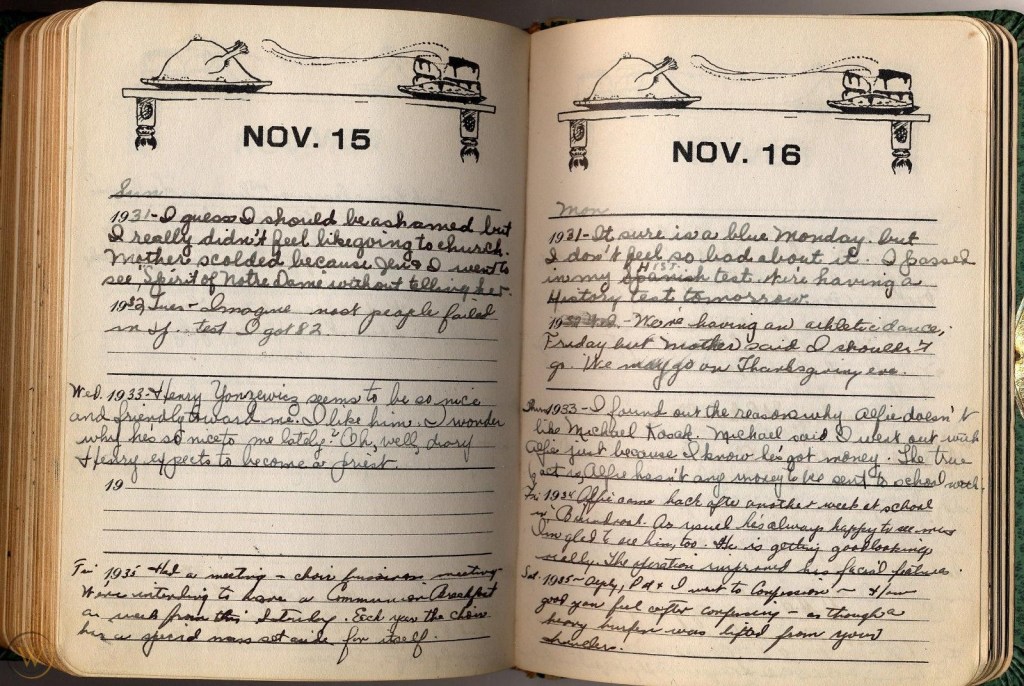 NOV. 15
Sun
1931-I guess I should be ashamed but
I really didn't feel like going to church.
Mother scolded because Jen & I went to
see, Spirit of Notre Dame without telling her.
1932 Tues- Imagine most people failed
in test I got 82
Wed. 1933-Henry Yonrewicz seems to be so nice
and friendly toward me. I like him. I wonder
why he's so nice to me lately? Oh, well, diary
Henry expects to become a priest.
19
Fri 1935- Had a meeting - choir business meeting
We're intending to have a Communion Breakfast
a week from this Saturday. Each year the choir
has a special mass set aside for itself.
NOV. 16
Mon
1931-It sure is a blue Monday but
I don't feel so bad about it. I passed
in my Hist. Spanish test. We're having a
History test tomorrow.
19 - We're having an athletic dance,
Friday but Mother said I shouldn't
go. We may go on Thanksgiving eve.
Thurs 1933-I found out the reason why Alfie doesn't
like Michael Kosak. Michael said I went out with
Alfie just because I know he's got money. The true
fact is, Alfie hasn't any money to be sent to school with.
Fri 1934 Alfie came back after another week at school
in . As usual he's always happy to see me
I'm glad to see him, too. He is getting goodlooking
really. The operation improved his facial features.
Sat. 1935- , Pat & I went to Confession - How
good you feel after confessing - as though a
heavy burden was lifted from your
shoulders.